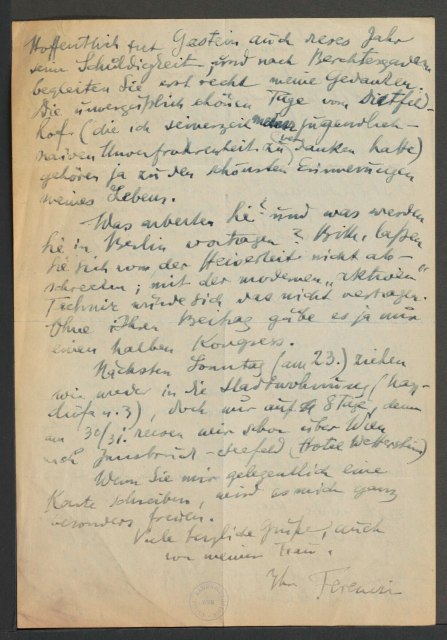 Hoffentlich tut Gastein auch dieses Jahr
seine Schuldigkeit, und nach Berchtesgaden
begleiten Sie erst recht meine Gedanken.
Die unvergeßlich schönen Tage vom Dietfeld-
hof (die ich seinerzeit meiner jugendlich-
naiven Unverfrorenheit zu verdanken hatte)
gehören ja zu den schönsten Erinnerungen
meines Lebens.
Was arbeiten Sie? und was werden
Sie in Berlin vortragen? Bitte, lassen
Sie sich von der Heiserkeit nicht ab-
schrecken; mit der modernen, „aktiven“
Technik würde sich das nicht vertragen.
Ohne Ihren Beitrag gäbe es ja nur
einen halben Kongress.
Nächsten Sonntag (am 23.) ziehen
wir wieder in die Stadtwohnung (Nagy-
diófa u. 3), doch nur auf 8 Tage, denn
am 30/31. reisen wir schon über Wien
nach Innsbruck-Seefeld (Hotel
Wenn Sie mir gelegentlich eine
Karte schreiben, wird es mich ganz
besonders freuen.
Viele herzliche Grüße, auch
von meiner Frau.
Ihr Ferenczi